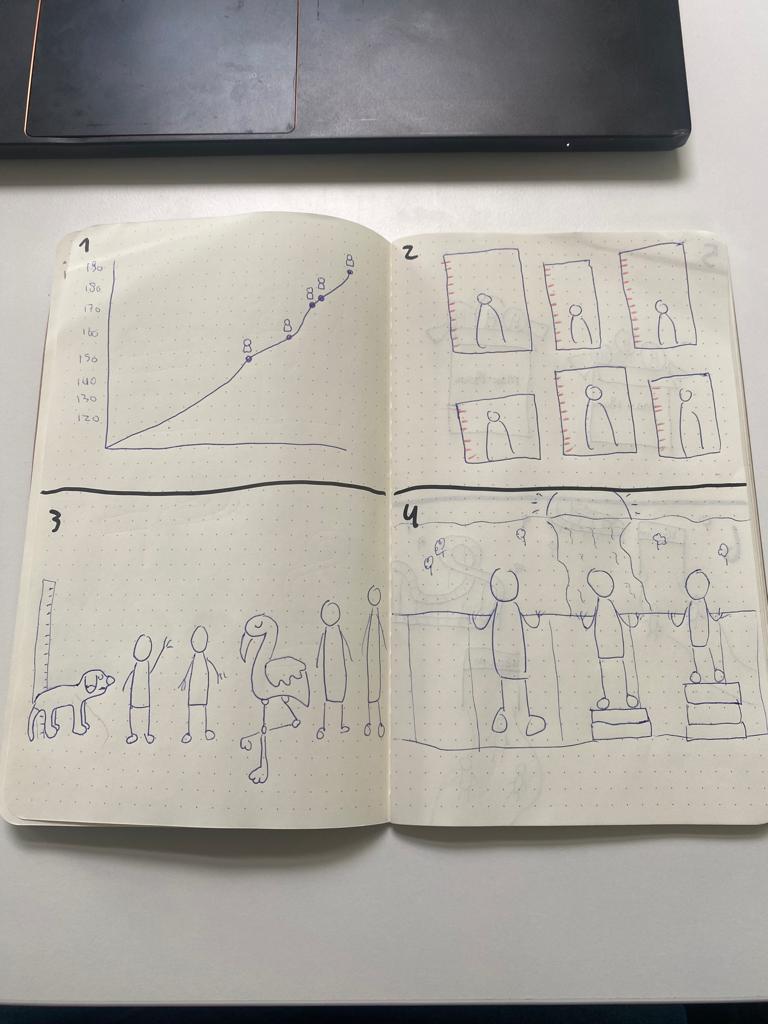 1
190
180
170
160
150
140
130
120
2
3
4